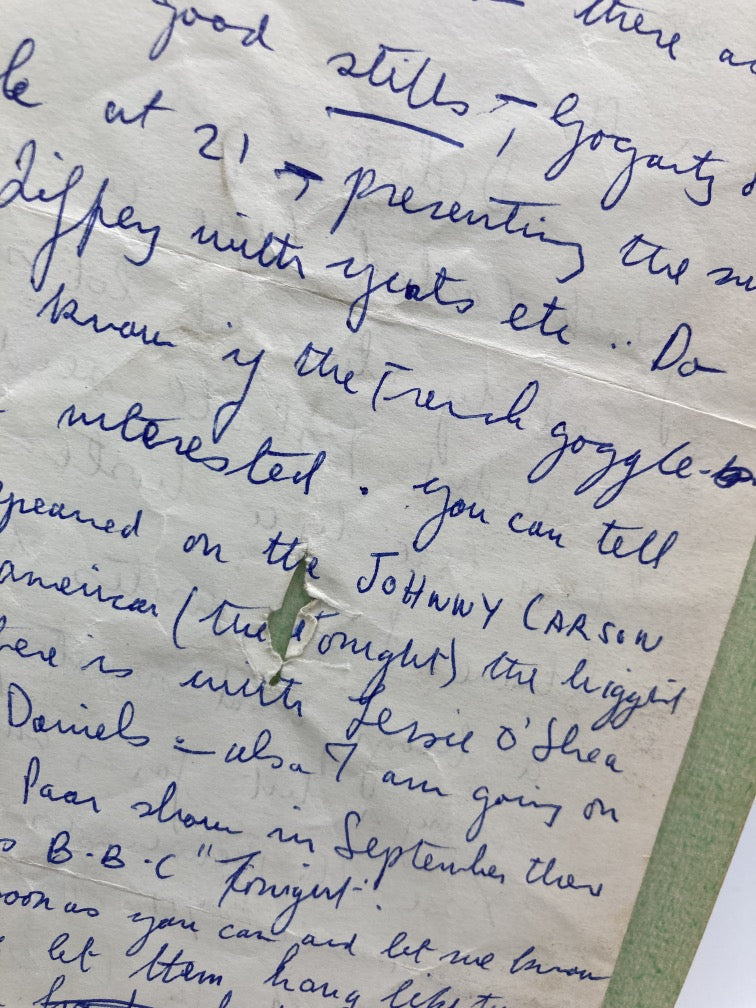 there
good stills, Gogarty
at 21 → presenting the
Liffey with yeats etc .. Do
know if the French goggle-
interested. you can tell
on the JOHNNY CARSON
american (the Tonight) the biggest
is with Tessie O'Shea
Daniels - also I am going on
Paar show in September then
B.B.C "Tonight".
soon as you can and let me know
let them hang like